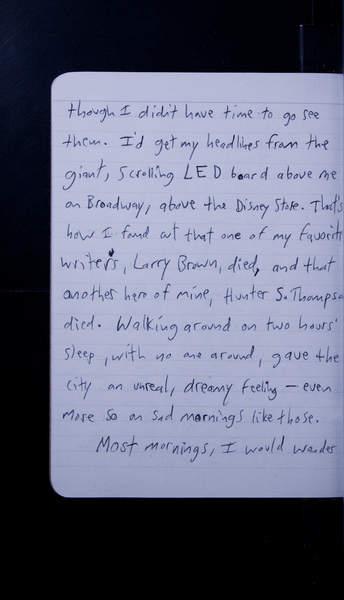 though I didn't have time to go see
them. I'd get my headlines from the
giant, scrolling LED board above me
on Broadway, above the Disney Store. That's
how I found out that one of my favorite
writers, Larry Brown, died, and that
another hero of mine, Hunter S. Thompso
died. Walking around on two hours'
sleep, with no one around, gave the
city an unreal, dreamy feeling — even
more so on sad mornings like those.
Most mornings, I would wander